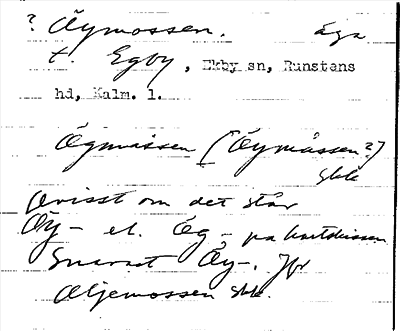 ? Äymossen. äga
t. Egby, Ekby sn, Runstens
hd, Kalm. l.
Ägmåssen [Äymåssen?]
Skk
Ovisst om det står
Äy- el. Äg- på kartskissen.
Snarast Äy-. Jfr
Oljemossen Skk.